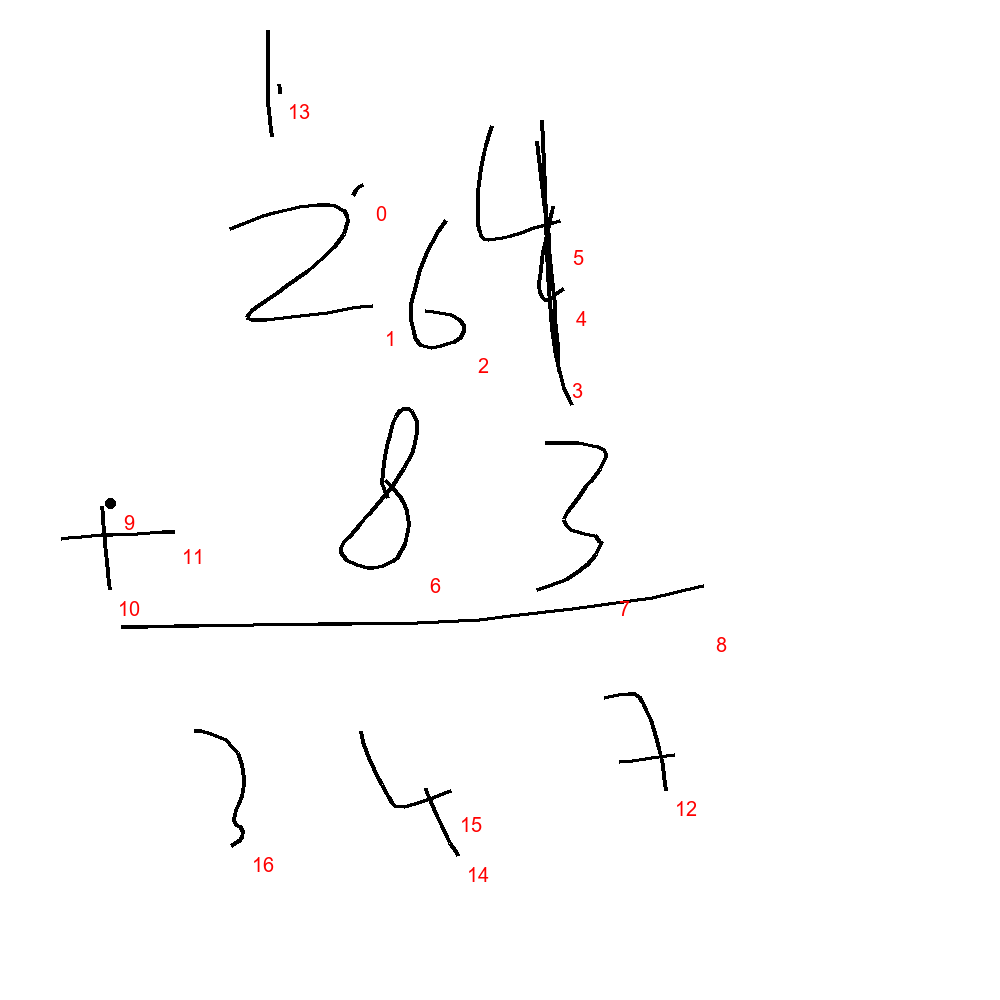 1
13
0
264
5
4
1
2
3
+ 83
9
11
6
10 7
8
347
12
15
16
14